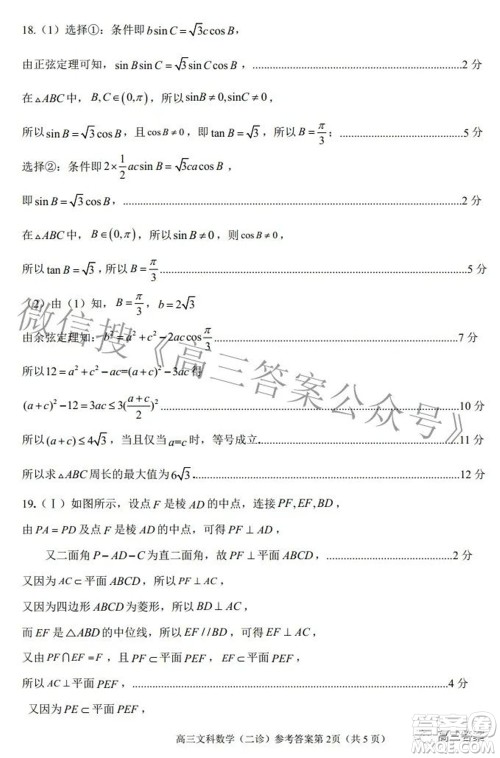 18.（1）选择①：条件即 b sin C = √3 c cos B，
由正弦定理可知，sin B sin C = √3 sin C cos B，……………2 分
在△ABC 中，B,C∈(0,π)，所以 sin B ≠ 0, sin C ≠ 0，
所以 sin B = √3 cos B，且 cos B ≠ 0，即 tan B = √3，所以 B = π/3；……………5 分
选择②：条件即 2×1/2 ac sin B = √3 ca cos B，
即 sin B = √3 cos B，……………2 分
在△ABC 中，B∈(0,π)，所以 sin B ≠ 0，则 cos B ≠ 0，
所以 tan B = √3，所以 B = π/3……………5 分
（2）由（1）知，B = π/3，b = 2√3
由余弦定理知：b² = a² + c² − 2ac cos π/3……………7 分
所以 12 = a² + c² − ac = (a+c)² − 3ac 得
(a+c)² − 12 = 3ac ≤ 3((a+c)/2)²……………10 分
所以 (a+c) ≤ 4√3，当且仅当 a=c 时，等号成立……………
所以求△ABC 周长的最大值为 6√3……………12 分
19.（Ⅰ）如图所示，设点 F 是棱 AD 的中点，连接 PF, EF, BD，
由 PA = PD 及点 F 是棱 AD 的中点，可得 PF⊥AD，
又二面角 P−AD−C 为直二面角，故 PF⊥平面 ABCD，……………2 分
又因为 AC⊂平面 ABCD，所以 PF⊥AC，
又因为四边形 ABCD 为菱形，所以 BD⊥AC，
而 EF 是△ABD 的中位线，所以 EF//BD，可得 EF⊥AC，
又由 PF∩EF=F，且 PF⊂平面 PEF，EF⊂平面 PEF，
所以 AC⊥平面 PEF，……………4 分
又因为 PE⊂平面 PEF，
高三文科数学（二诊）参考答案第 2页（共 5 页）
微信搜《高三答案公众号》
高三答案
MXQE.COM